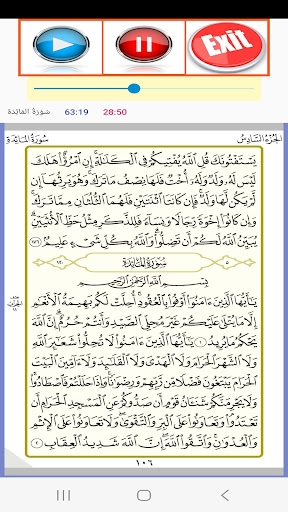 Exit
سورة المائدة 63:19 28:50
الجُزْءُ السَّادِسُ سُورَةُ المَائِدَةِ
يَسْتَفْتُونَكَ قُلِ ٱللَّهُ يُفْتِيكُمْ فِي ٱلْكَلَٰلَةِ ۚ إِنِ ٱمْرُؤٌا۟ هَلَكَ
لَيْسَ لَهُۥ وَلَدٌ وَلَهُۥٓ أُخْتٌ فَلَهَا نِصْفُ مَا تَرَكَ ۚ وَهُوَ يَرِثُهَآ إِن
لَّمْ يَكُن لَّهَا وَلَدٌ ۚ فَإِن كَانَتَا ٱثْنَتَيْنِ فَلَهُمَا ٱلثُّلُثَانِ مِمَّا تَرَكَ ۚ
وَإِن كَانُوٓا۟ إِخْوَةً رِّجَالًا وَنِسَآءً فَلِلذَّكَرِ مِثْلُ حَظِّ ٱلْأُنثَيَيْنِ ۗ
يُبَيِّنُ ٱللَّهُ لَكُمْ أَن تَضِلُّوا۟ ۗ وَٱللَّهُ بِكُلِّ شَيْءٍ عَلِيمٌۢ ١٧٦
٥ سُورَةُ المَائِدَةِ ١٢٠
بِسْمِ ٱللَّهِ ٱلرَّحْمَٰنِ ٱلرَّحِيمِ
يَٰٓأَيُّهَا ٱلَّذِينَ ءَامَنُوٓا۟ أَوْفُوا۟ بِٱلْعُقُودِ ۚ أُحِلَّتْ لَكُم بَهِيمَةُ ٱلْأَنْعَٰمِ
إِلَّا مَا يُتْلَىٰ عَلَيْكُمْ غَيْرَ مُحِلِّي ٱلصَّيْدِ وَأَنتُمْ حُرُمٌ ۗ إِنَّ ٱللَّهَ
يَحْكُمُ مَا يُرِيدُ ١ يَٰٓأَيُّهَا ٱلَّذِينَ ءَامَنُوا۟ لَا تُحِلُّوا۟ شَعَٰٓئِرَ ٱللَّهِ
وَلَا ٱلشَّهْرَ ٱلْحَرَامَ وَلَا ٱلْهَدْيَ وَلَا ٱلْقَلَٰٓئِدَ وَلَآ ءَآمِّينَ ٱلْبَيْتَ
ٱلْحَرَامَ يَبْتَغُونَ فَضْلًا مِّن رَّبِّهِمْ وَرِضْوَٰنًا ۚ وَإِذَا حَلَلْتُمْ فَٱصْطَادُوا۟ ۚ
وَلَا يَجْرِمَنَّكُمْ شَنَـَٔانُ قَوْمٍ أَن صَدُّوكُمْ عَنِ ٱلْمَسْجِدِ ٱلْحَرَامِ أَن
تَعْتَدُوا۟ ۘ وَتَعَاوَنُوا۟ عَلَى ٱلْبِرِّ وَٱلتَّقْوَىٰ ۖ وَلَا تَعَاوَنُوا۟ عَلَى ٱلْإِثْمِ
وَٱلْعُدْوَٰنِ ۚ وَٱتَّقُوا۟ ٱللَّهَ ۖ إِنَّ ٱللَّهَ شَدِيدُ ٱلْعِقَابِ ٢
١٠٦